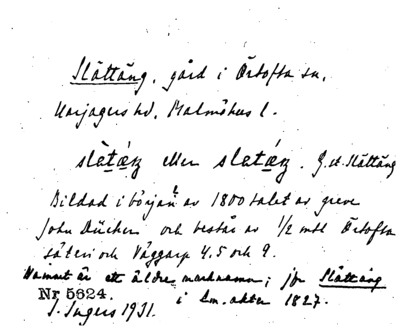 Slättäng, gård i Örtofta sn,
Harjagers hd, Malmöhus l.
eller G. st. Slättäng
Bildad i början av 1800 talet av greve
John Dücker och består av 1/2 mtl Örtofta
säteri och Väggarp 4, 5 och 9.
Namnet är ett äldre marknamn; jfr Slättäng
Nr 5624. i Lm. akter 1827.
I. Ingers 1931.